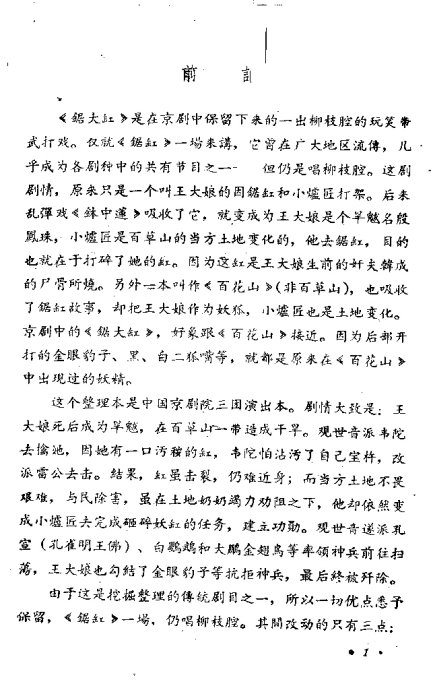 前言
《鋸大缸》是在京剧中保留下来的一出柳枝腔的玩笑帶
武打戏。仅就《鋸缸》一場来講，它曾在广大地区流傳，几
乎成为各剧种中的共有节目之一　但仍是唱柳枝腔。这剧
剧情，原来只是一个叫王大娘的因鋸缸和小爐匠打架。后来
乱彈戏《鉢中蓮》吸收了它，就变成为王大娘是个旱魃名殷
鳳珠，小爐匠是百草山的当方土地变化的，他去鋸缸，目的
也就在于打碎了她的缸。因为这缸是王大娘生前的奸夫韓成
的尸骨所燒。另外一本叫作《百花山》(非百草山)，也吸收
了鋸缸故事，却把王大娘作为妖狐，小爐匠也是土地变化。
京剧中的《鋸大缸》，好象跟《百花山》接近。因为后部开
打的金眼豹子、黑、白二狐等，就都是原来在《百花山》
中出現过的妖精。
这个整理本是中国京剧院三团演出本。剧情大致是：王
大娘死后成为旱魃，在百草山一带造成干旱。观世音派韦陀
去擒她，因她有一口污穢的缸，韦陀怕沾污了自己宝杵，改
派雷公去击。結果，缸虽击裂，仍难近身；而当方土地不畏
艰难，与民除害，虽在土地奶奶竭力劝阻之下，他却依然变
成小爐匠去完成砸碎妖缸的任务，建立功勋。观世音遂派孔
宣（孔雀明王佛）、白鸚鵡和大鵬金翅鸟等率領神兵前往扫
蕩，王大娘也勾結了金眼豹子等抗拒神兵，最后終被歼除。
由于这是挖掘整理的傳統剧目之一，所以一切优点悉予
保留，《鋸缸》一場，仍唱柳枝腔。其間改动的只有三点：
• 1 •